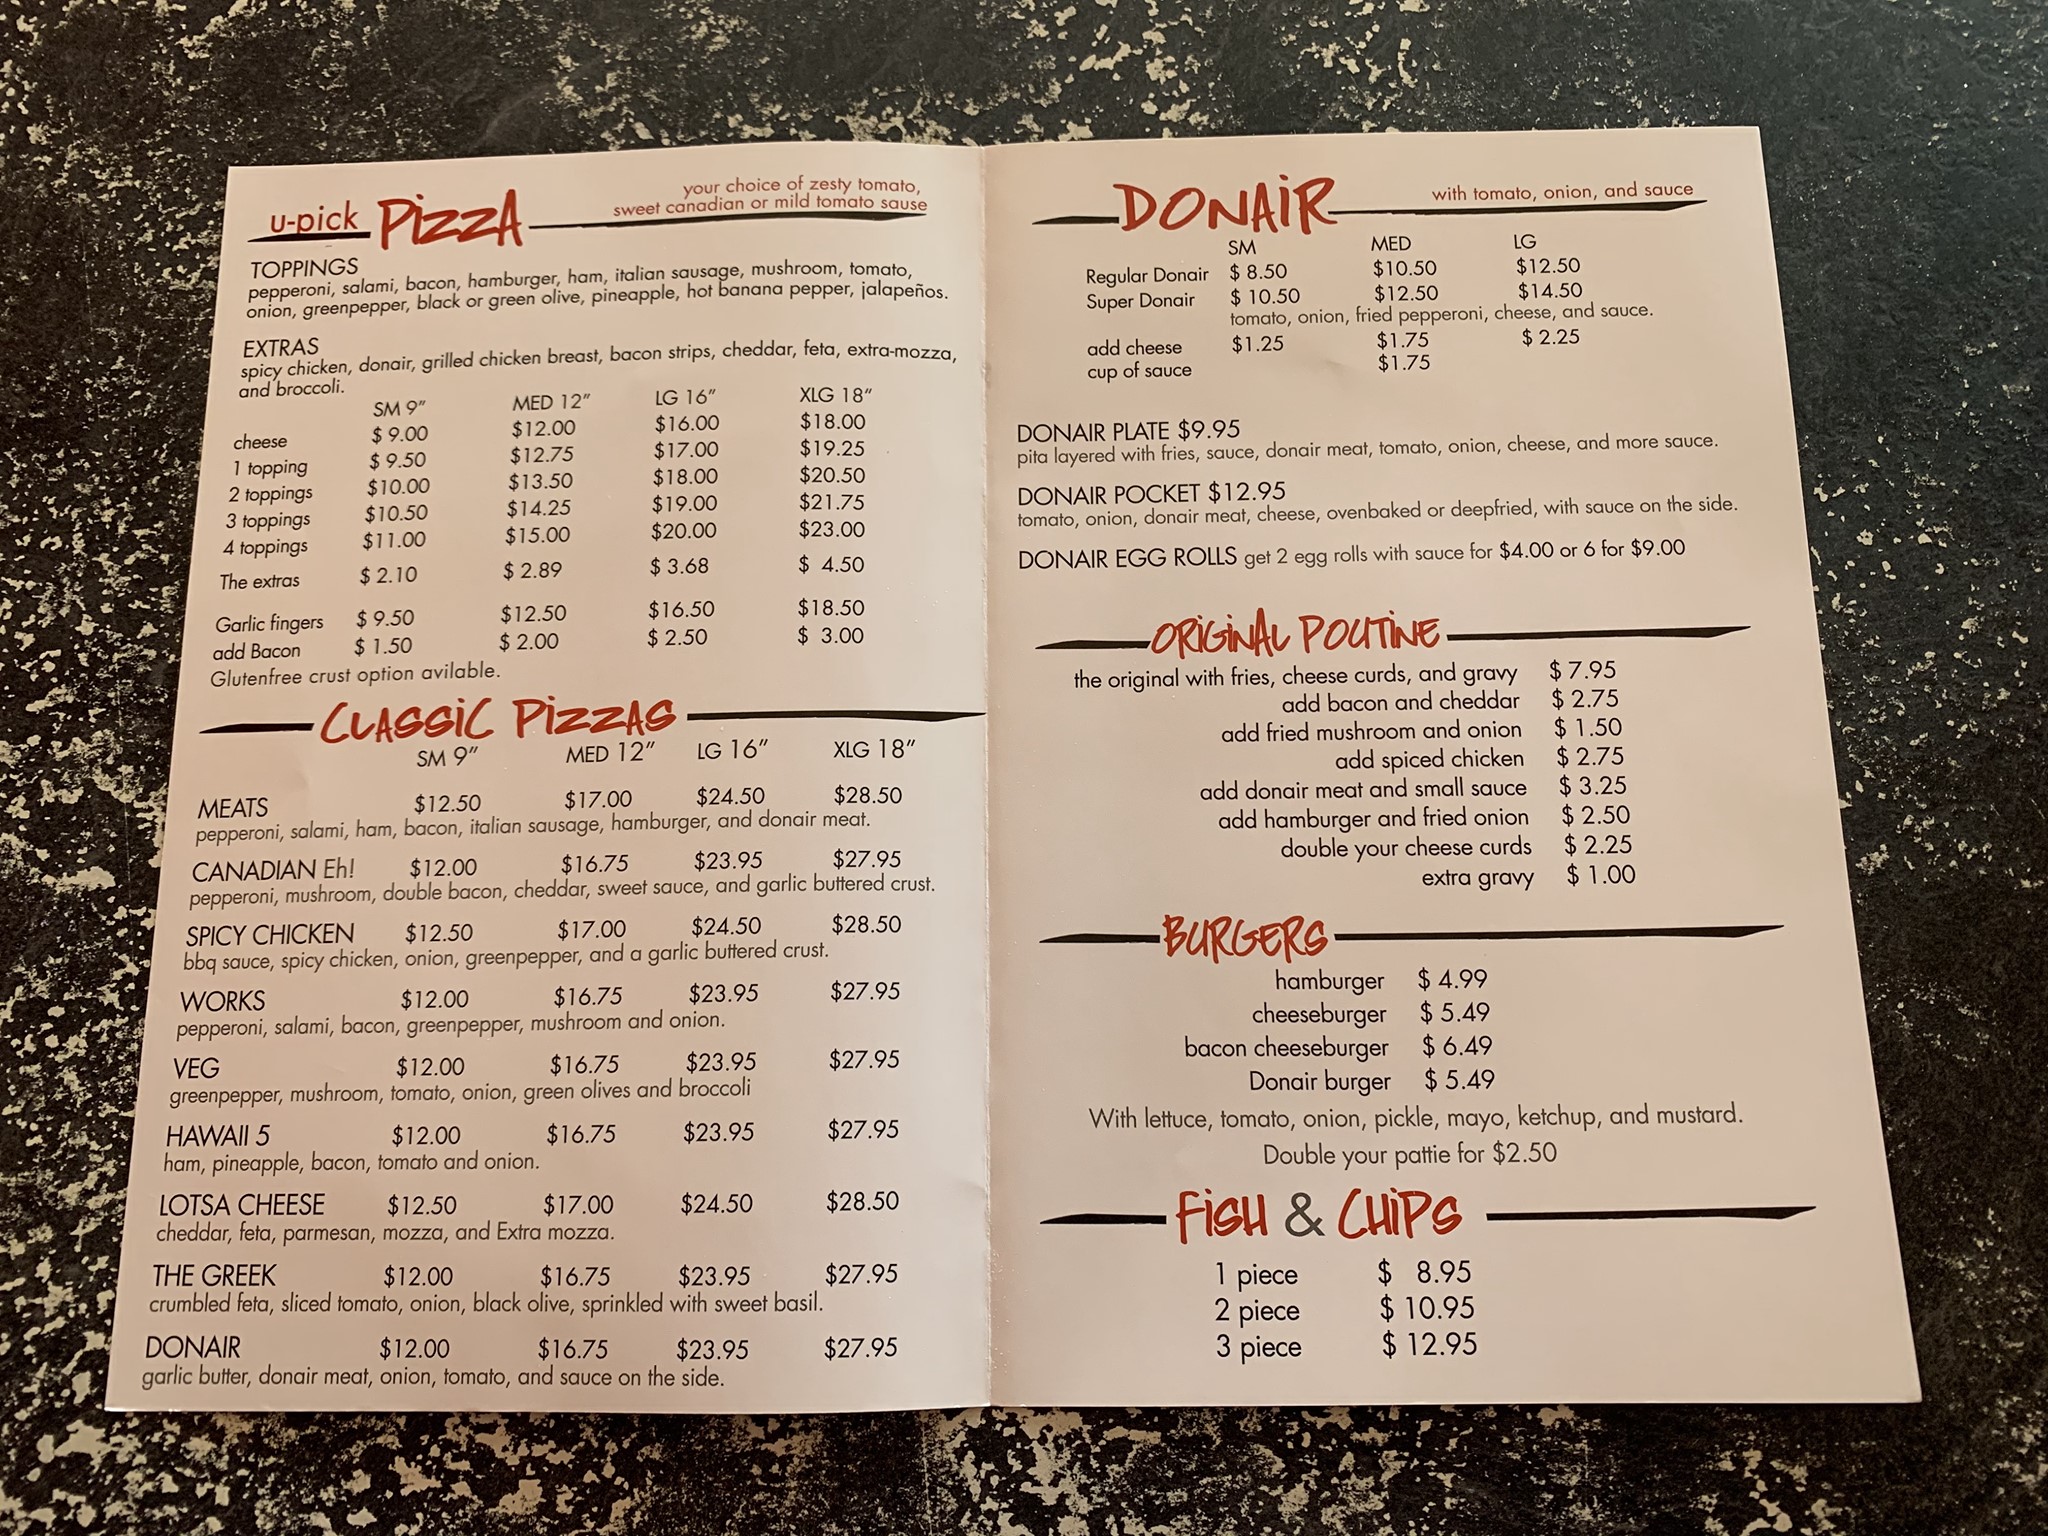 u-pick PIZZA
your choice of zesty tomato,
sweet canadian or mild tomato sause
TOPPINGS
pepperoni, salami, bacon, hamburger, ham, italian sausage, mushroom, tomato,
onion, greenpepper, black or green olive, pineapple, hot banana pepper, jalapeños.
EXTRAS
spicy chicken, donair, grilled chicken breast, bacon strips, cheddar, feta, extra-mozza,
and broccoli.
SM 9" MED 12" LG 16" XLG 18"
cheese $ 9.00 $12.00 $16.00 $18.00
1 topping $ 9.50 $12.75 $17.00 $19.25
2 toppings $10.00 $13.50 $18.00 $20.50
3 toppings $10.50 $14.25 $19.00 $21.75
4 toppings $11.00 $15.00 $20.00 $23.00
The extras $ 2.10 $ 2.89 $ 3.68 $ 4.50
Garlic fingers $ 9.50 $12.50 $16.50 $18.50
add Bacon $ 1.50 $ 2.00 $ 2.50 $ 3.00
Glutenfree crust option avilable.
CLASSIC PIZZAS
SM 9" MED 12" LG 16" XLG 18"
MEATS $12.50 $17.00 $24.50 $28.50
pepperoni, salami, ham, bacon, italian sausage, hamburger, and donair meat.
CANADIAN Eh! $12.00 $16.75 $23.95 $27.95
pepperoni, mushroom, double bacon, cheddar, sweet sauce, and garlic buttered crust.
SPICY CHICKEN $12.50 $17.00 $24.50 $28.50
bbq sauce, spicy chicken, onion, greenpepper, and a garlic buttered crust.
WORKS $12.00 $16.75 $23.95 $27.95
pepperoni, salami, bacon, greenpepper, mushroom and onion.
VEG $12.00 $16.75 $23.95 $27.95
greenpepper, mushroom, tomato, onion, green olives and broccoli
HAWAII 5 $12.00 $16.75 $23.95 $27.95
ham, pineapple, bacon, tomato and onion.
LOTSA CHEESE $12.50 $17.00 $24.50 $28.50
cheddar, feta, parmesan, mozza, and Extra mozza.
THE GREEK $12.00 $16.75 $23.95 $27.95
crumbled feta, sliced tomato, onion, black olive, sprinkled with sweet basil.
DONAIR $12.00 $16.75 $23.95 $27.95
garlic butter, donair meat, onion, tomato, and sauce on the side.
DONAIR
with tomato, onion, and sauce
SM MED LG
Regular Donair $ 8.50 $10.50 $12.50
Super Donair $ 10.50 $12.50 $14.50
tomato, onion, fried pepperoni, cheese, and sauce.
add cheese $1.25 $1.75 $ 2.25
cup of sauce $1.75
DONAIR PLATE $9.95
pita layered with fries, sauce, donair meat, tomato, onion, cheese, and more sauce.
DONAIR POCKET $12.95
tomato, onion, donair meat, cheese, ovenbaked or deepfried, with sauce on the side.
DONAIR EGG ROLLS get 2 egg rolls with sauce for $4.00 or 6 for $9.00
ORIGINAL POUTINE
the original with fries, cheese curds, and gravy $ 7.95
add bacon and cheddar $ 2.75
add fried mushroom and onion $ 1.50
add spiced chicken $ 2.75
add donair meat and small sauce $ 3.25
add hamburger and fried onion $ 2.50
double your cheese curds $ 2.25
extra gravy $ 1.00
BURGERS
hamburger $ 4.99
cheeseburger $ 5.49
bacon cheeseburger $ 6.49
Donair burger $ 5.49
With lettuce, tomato, onion, pickle, mayo, ketchup, and mustard.
Double your pattie for $2.50
FISH & CHIPS
1 piece $ 8.95
2 piece $ 10.95
3 piece $ 12.95